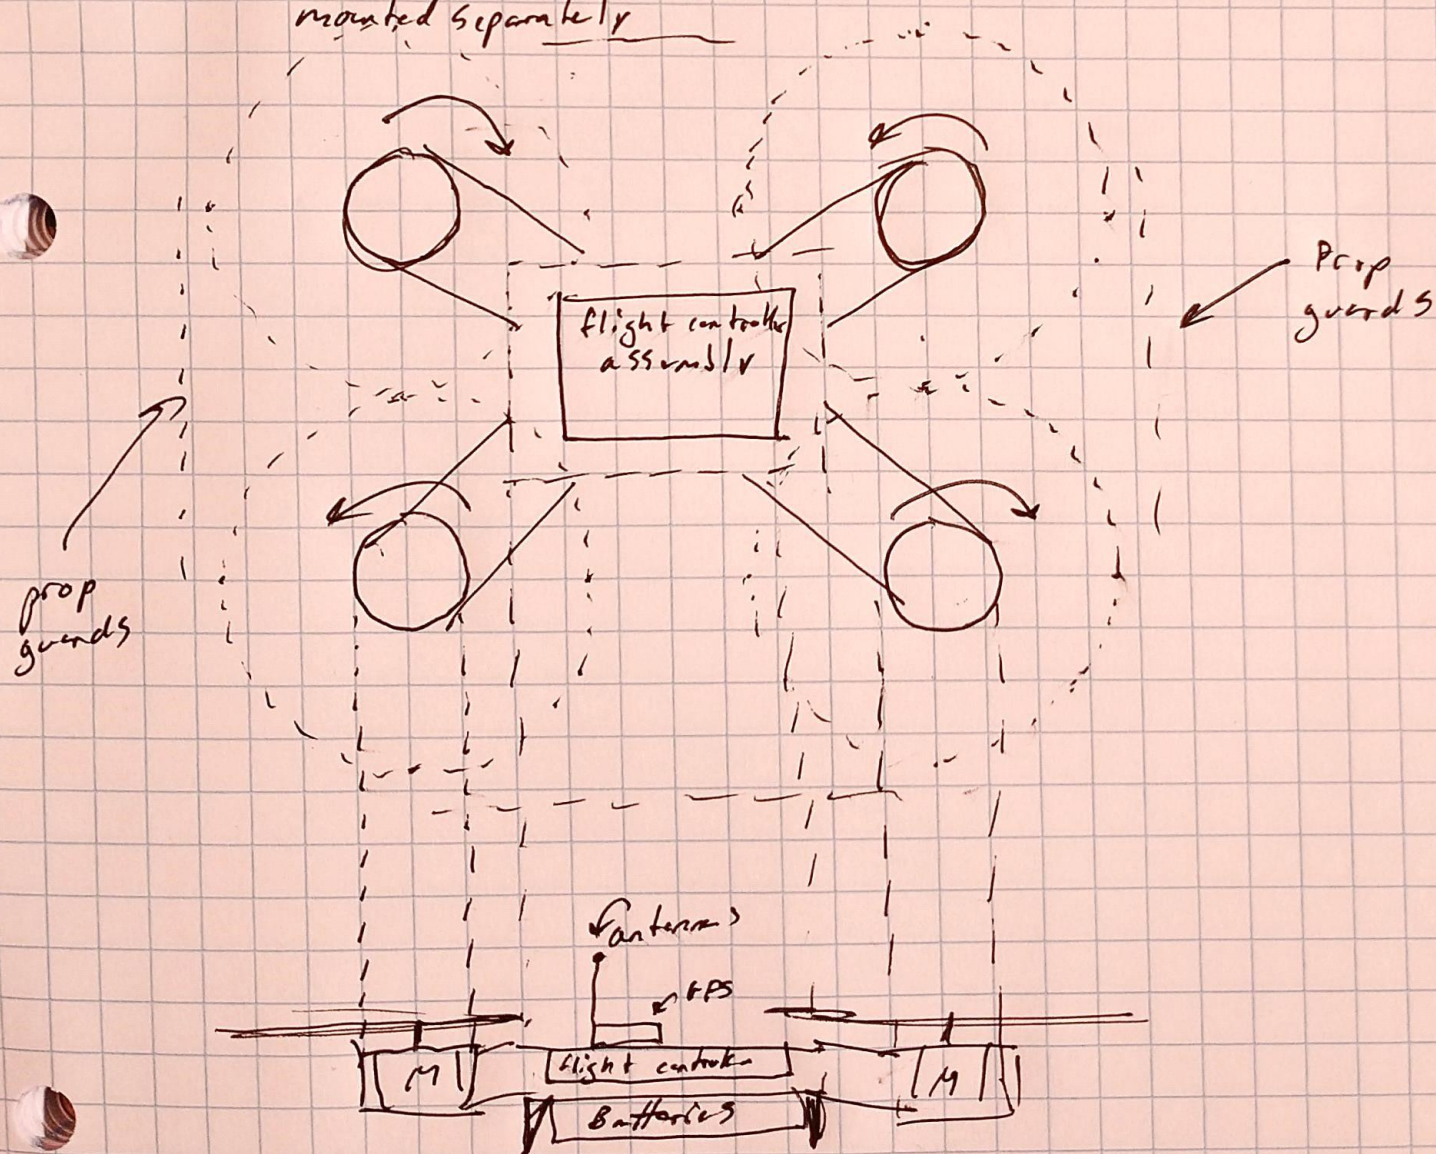 mounted separately
Prop
guards
flight controller
assembly
prop
guards
antennas
GPS
M
flight controller
M
Batteries